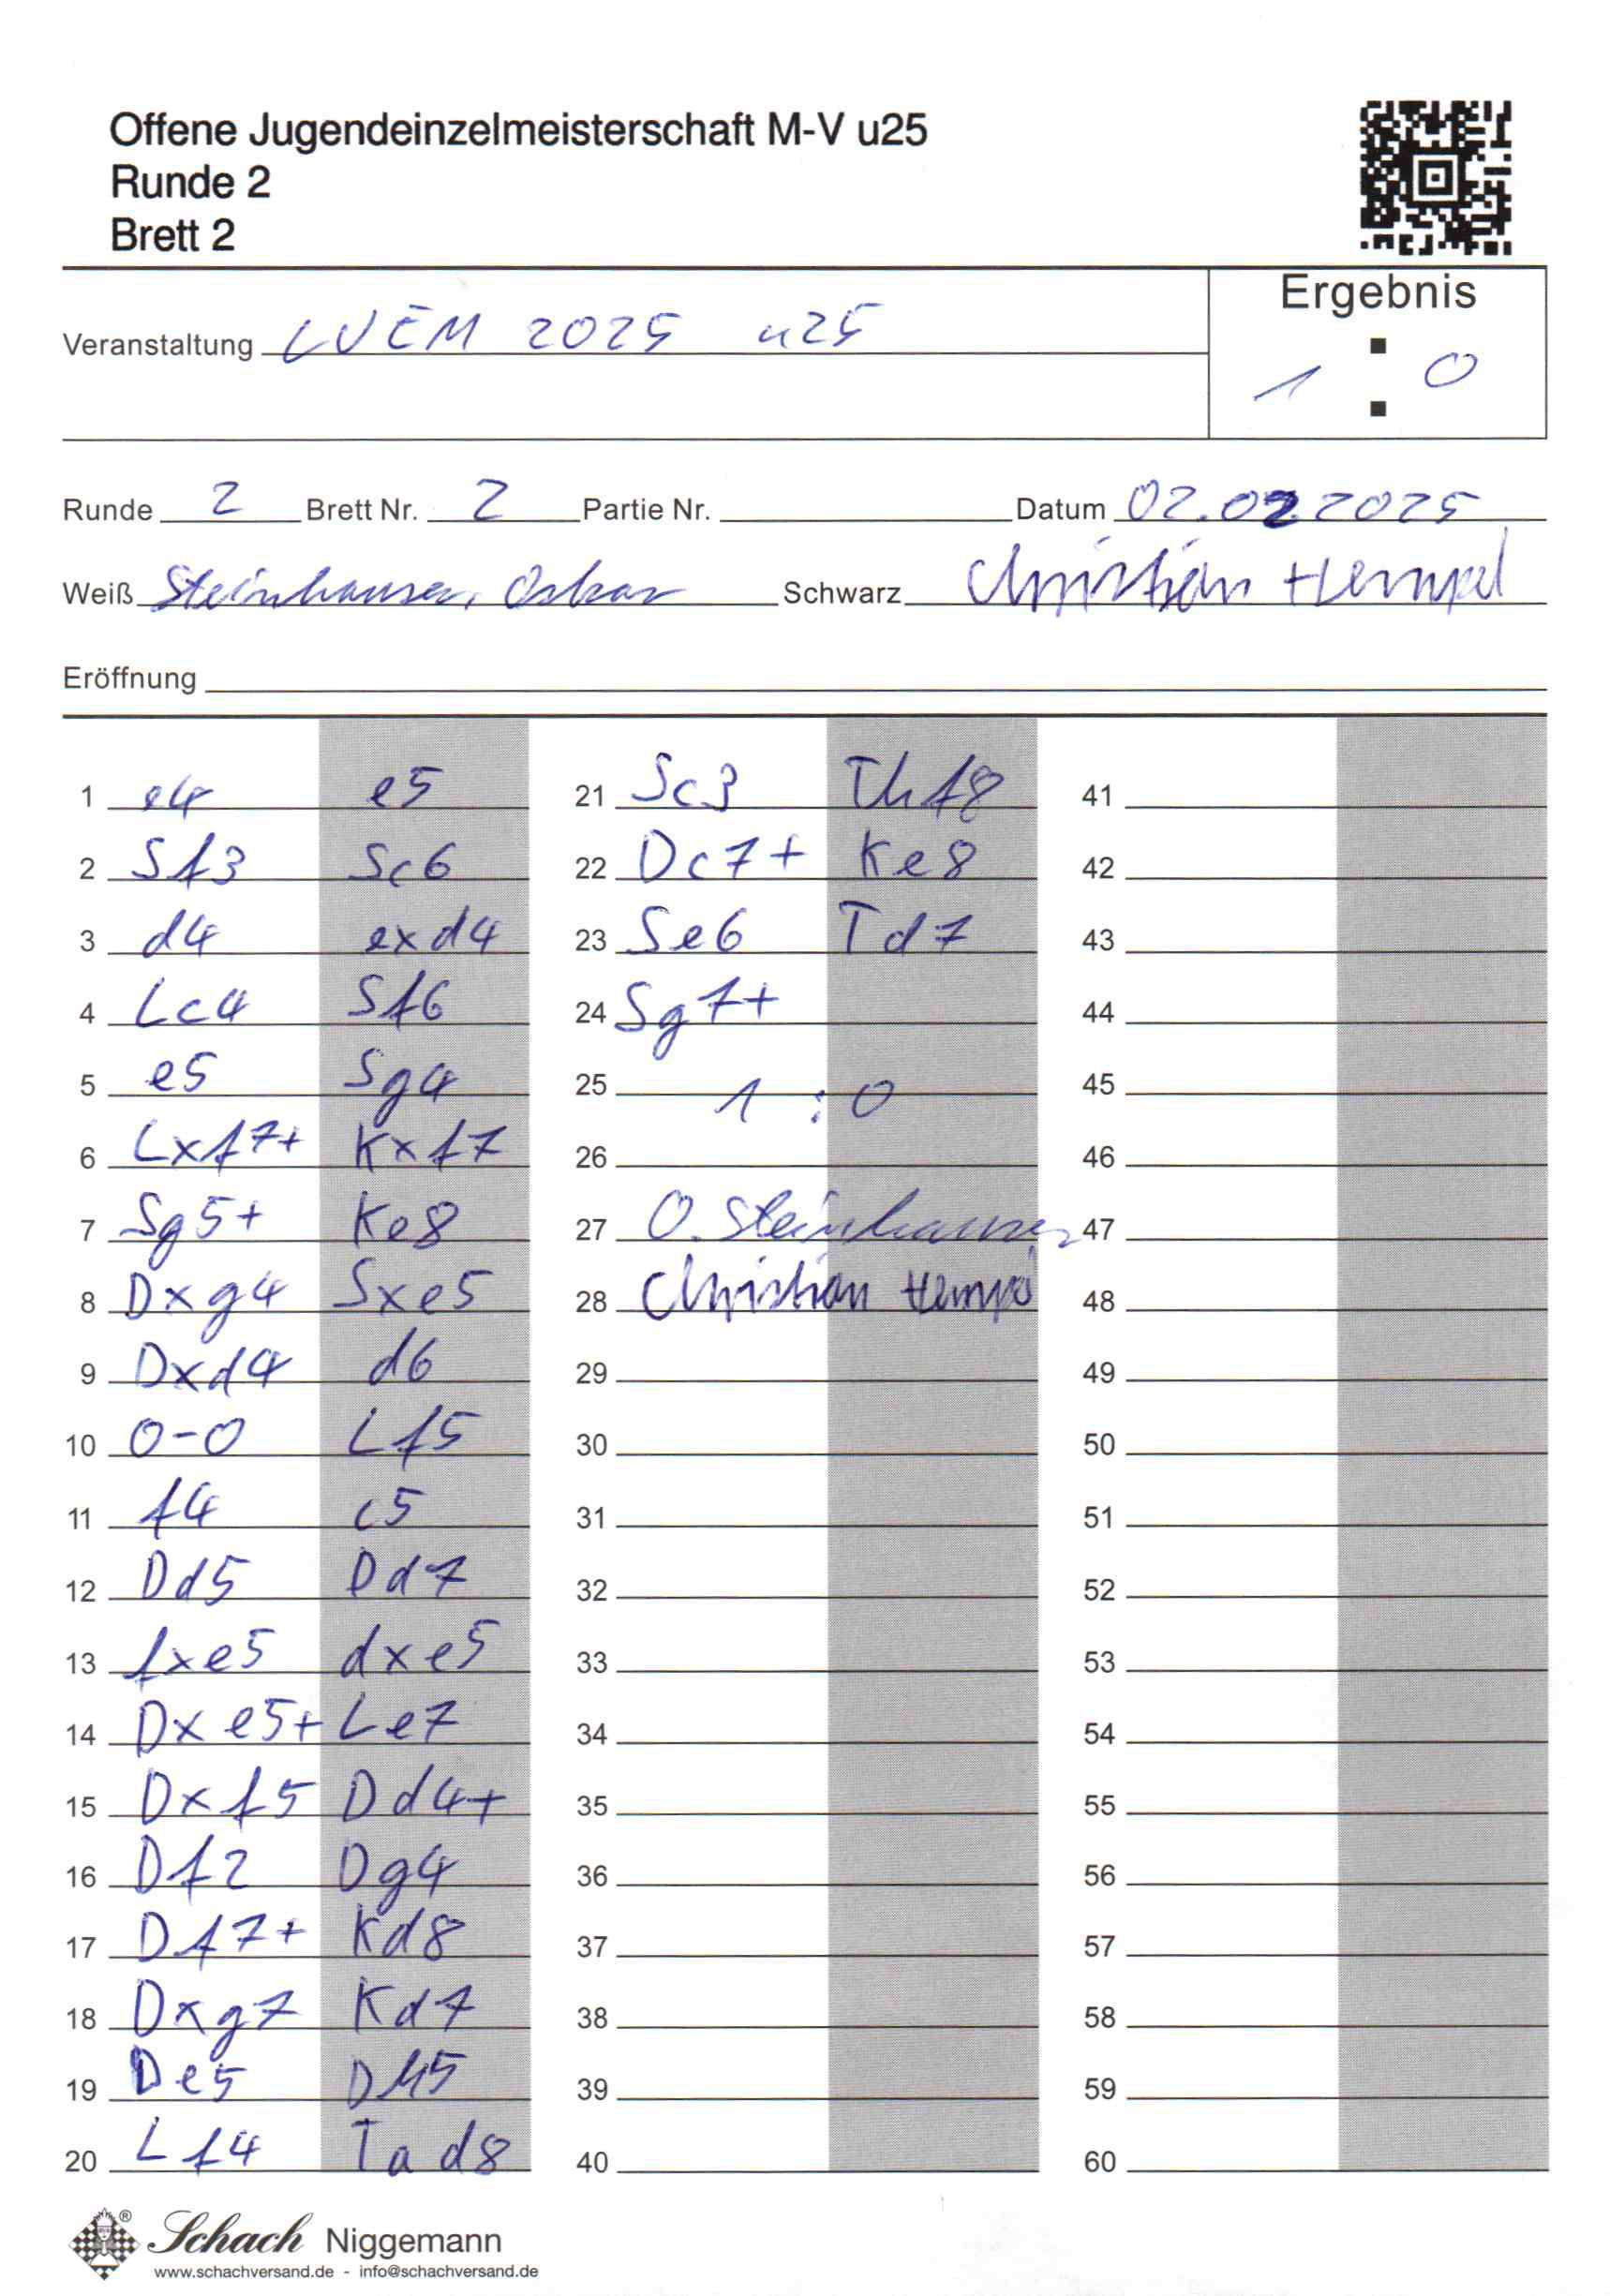 Offene Jugendeinzelmeisterschaft M-V u25
Runde 2
Brett 2
Ergebnis
1 : 0
Veranstaltung LJEM 2025 u25
Runde 2 Brett Nr. 2 Partie Nr. Datum 02.02.2025
Weiß Steinhauser, Oskar Schwarz Christian Hempel
Eröffnung
1 e4 e5
2 Sf3 Sc6
3 d4 exd4
4 Lc4 Sf6
5 e5 Sg4
6 Lxf7+ Kxf7
7 Sg5+ Ke8
8 Dxg4 Sxe5
9 Dxd4 d6
10 0-0 Lf5
11 f4 c5
12 Dd5 Dd7
13 fxe5 dxe5
14 Dxe5+ Le7
15 Dxf5 Dd4+
16 Df2 Dg4
17 Df7+ Kd8
18 Dxg7 Kd7
19 De5 Dh5
20 Lf4 Tad8
21 Sc3 Thf8
22 Dc7+ Ke8
23 Se6 Td7
24 Sg7+
25 1 : 0
26
27 O. Steinhauser
28 Christian Hempel
29
30
31
32
33
34
35
36
37
38
39
40
41
42
43
44
45
46
47
48
49
50
51
52
53
54
55
56
57
58
59
60
Schach Niggemann
www.schachversand.de - info@schachversand.de